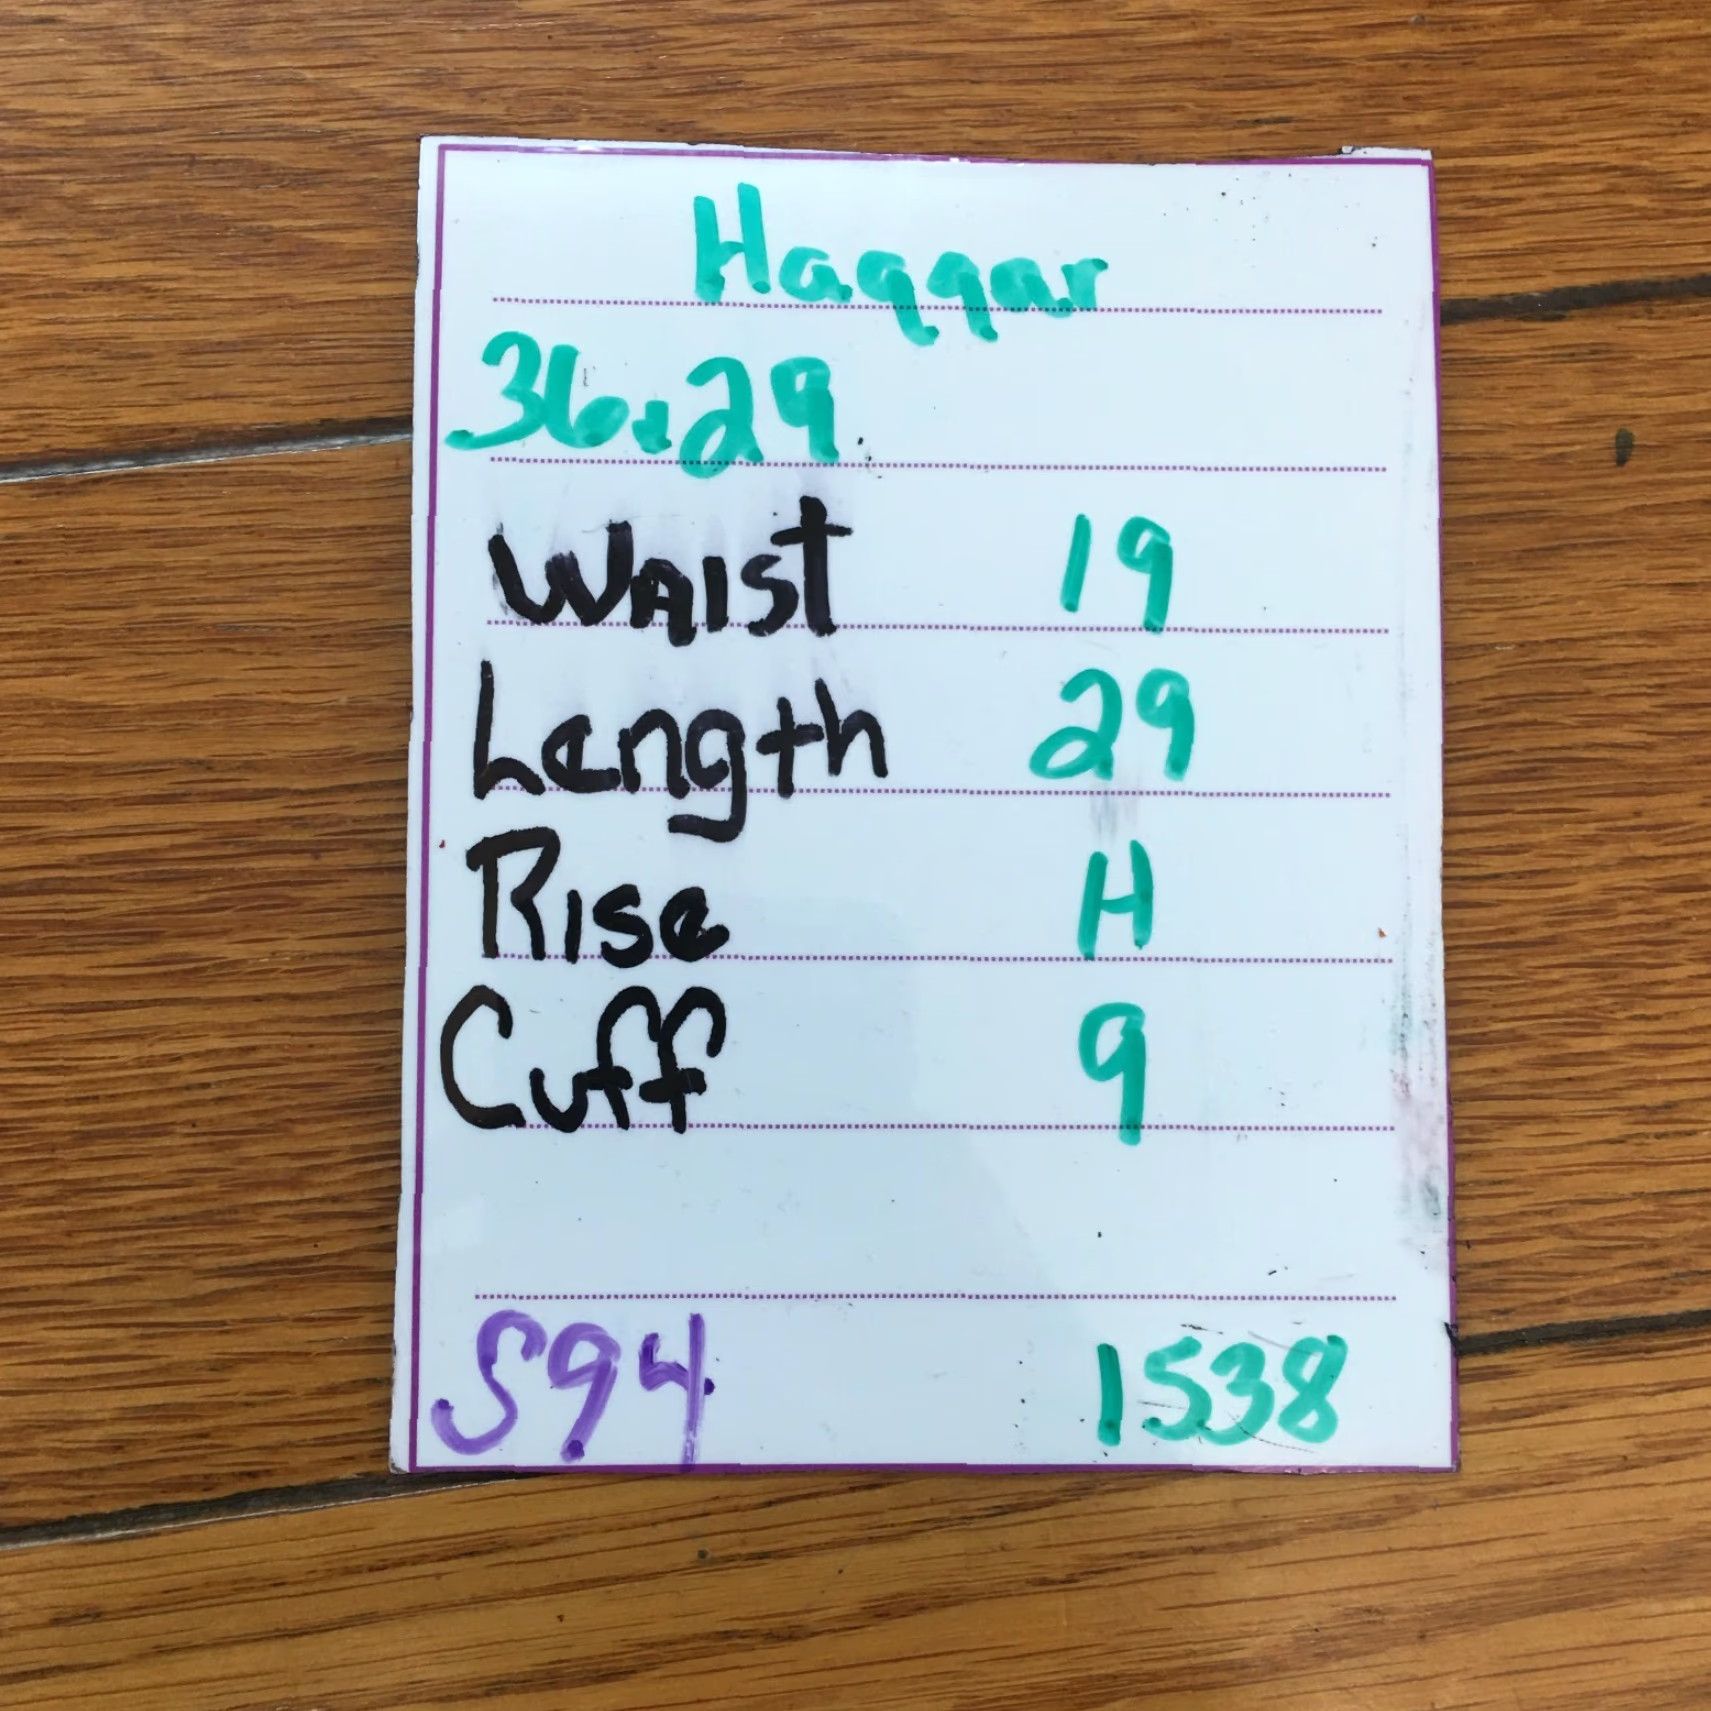 Haggar
36x29
Waist 19
Length 29
Rise H
Cuff 9
S94 1538